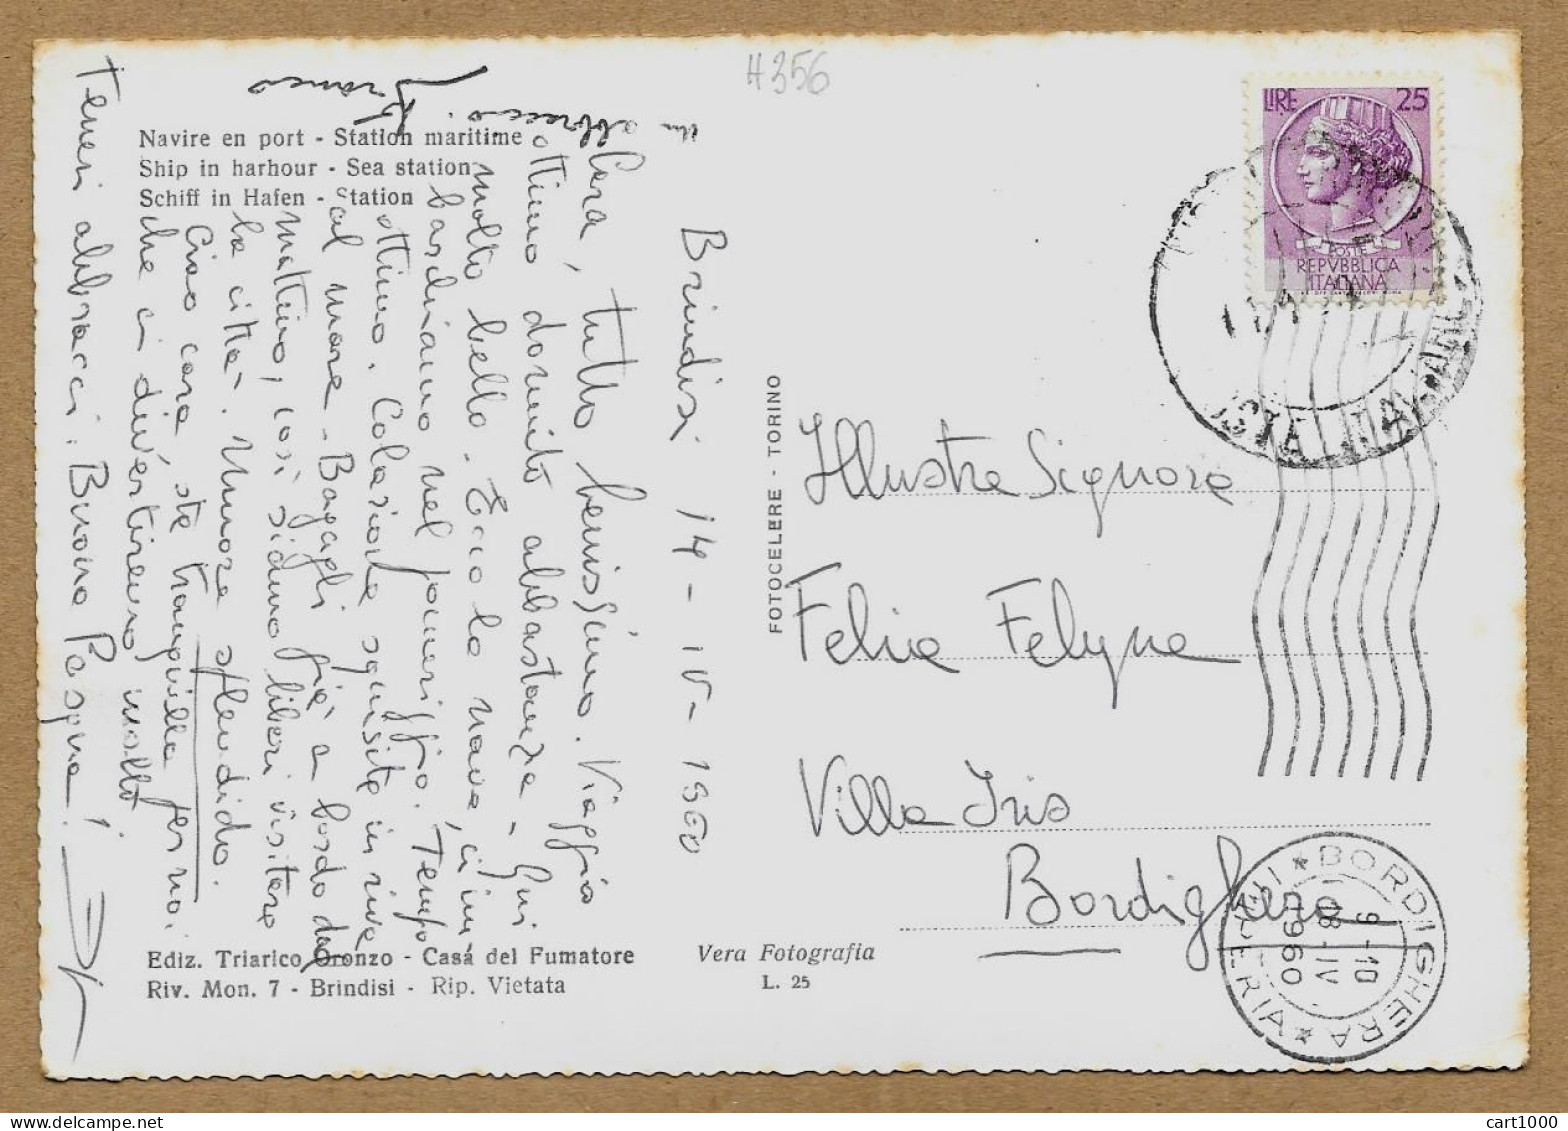 H356
Navire en port - Station maritime
Ship in harhour - Sea station
Schiff in Hafen - Station
Brindisi 14-IV-1960
Cara, tutto benissimo. Viaggio
ottimo dormito abbastanza - Qui
molto bello. Ecco la nave, ci im
barchiamo nel pomeriggio. Tempo
ottimo. Colazione squisita in riva
al mare - Bagagli già a bordo dal
mattino, così siamo liberi visitare
la città. Umore splendido.
Ciao cara, sta tranquilla per noi
che ci divertiremo molto
Teneri abbracci. Buona Pasqua!
un abbraccio.
Franco
Ediz. Triarico Oronzo - Casá del Fumatore
Riv. Mon. 7 - Brindisi - Rip. Vietata
Vera Fotografia
L. 25
FOTOCELERE - TORINO
LIRE 25
POSTE
REPVBBLICA
ITALIANA
Illustre Signora
Felia Felyne
Villa Iris
Bordighera
BORDIGHERA
9-10
18-IV
1960
cart1000